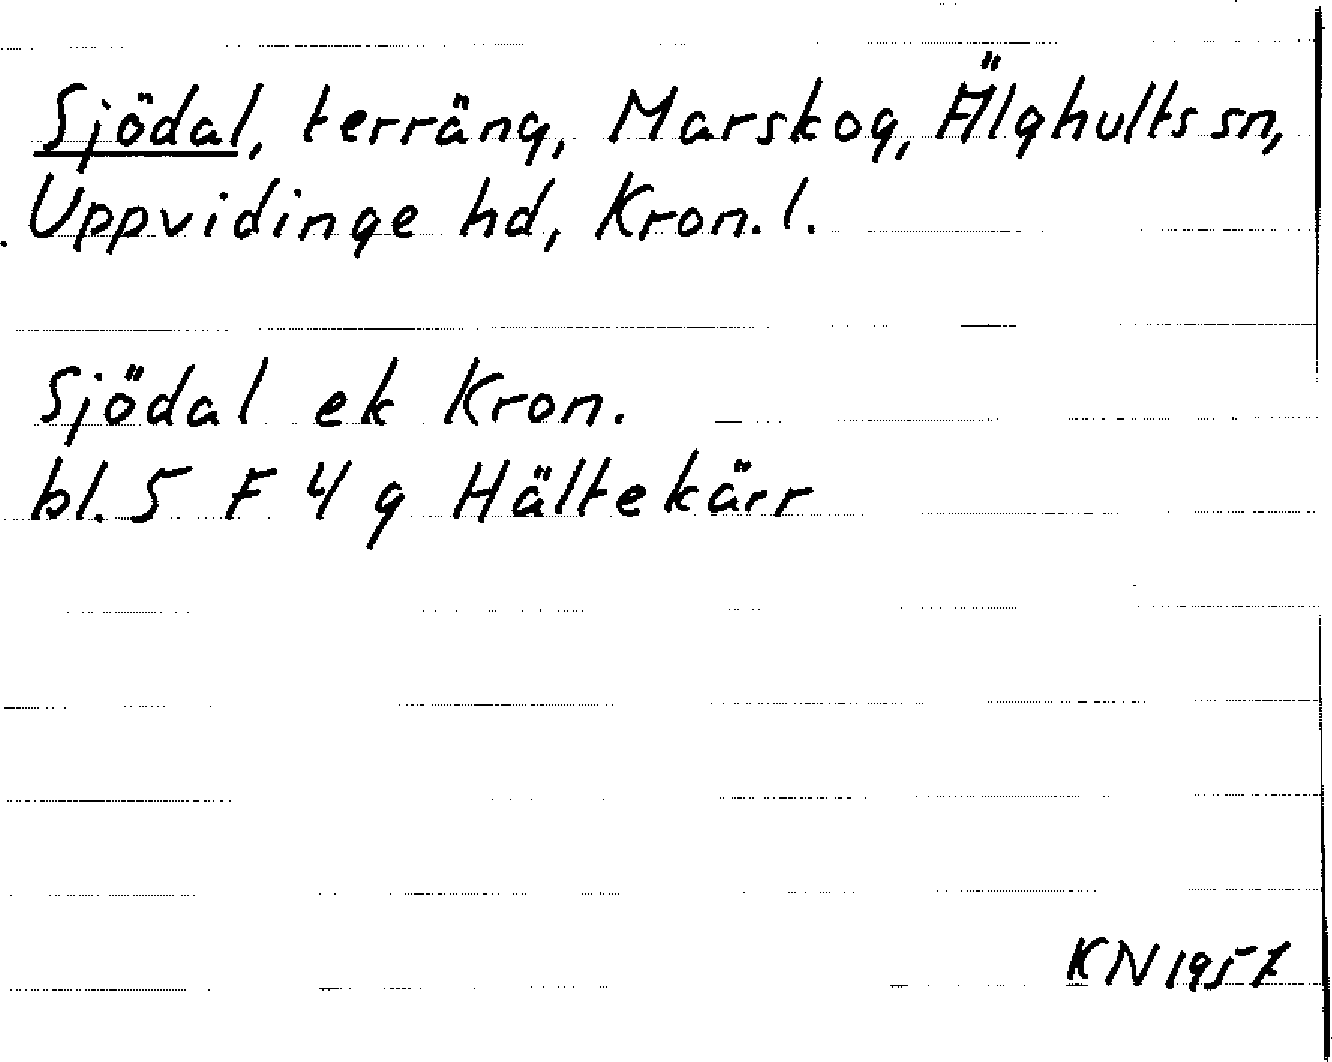 Sjödal, terräng, Marskog, Älghults sn,
Uppvidinge hd, Kron. l.
Sjödal ek Kron.
bl. 5 F 4 g Hältekärr
KN 1957